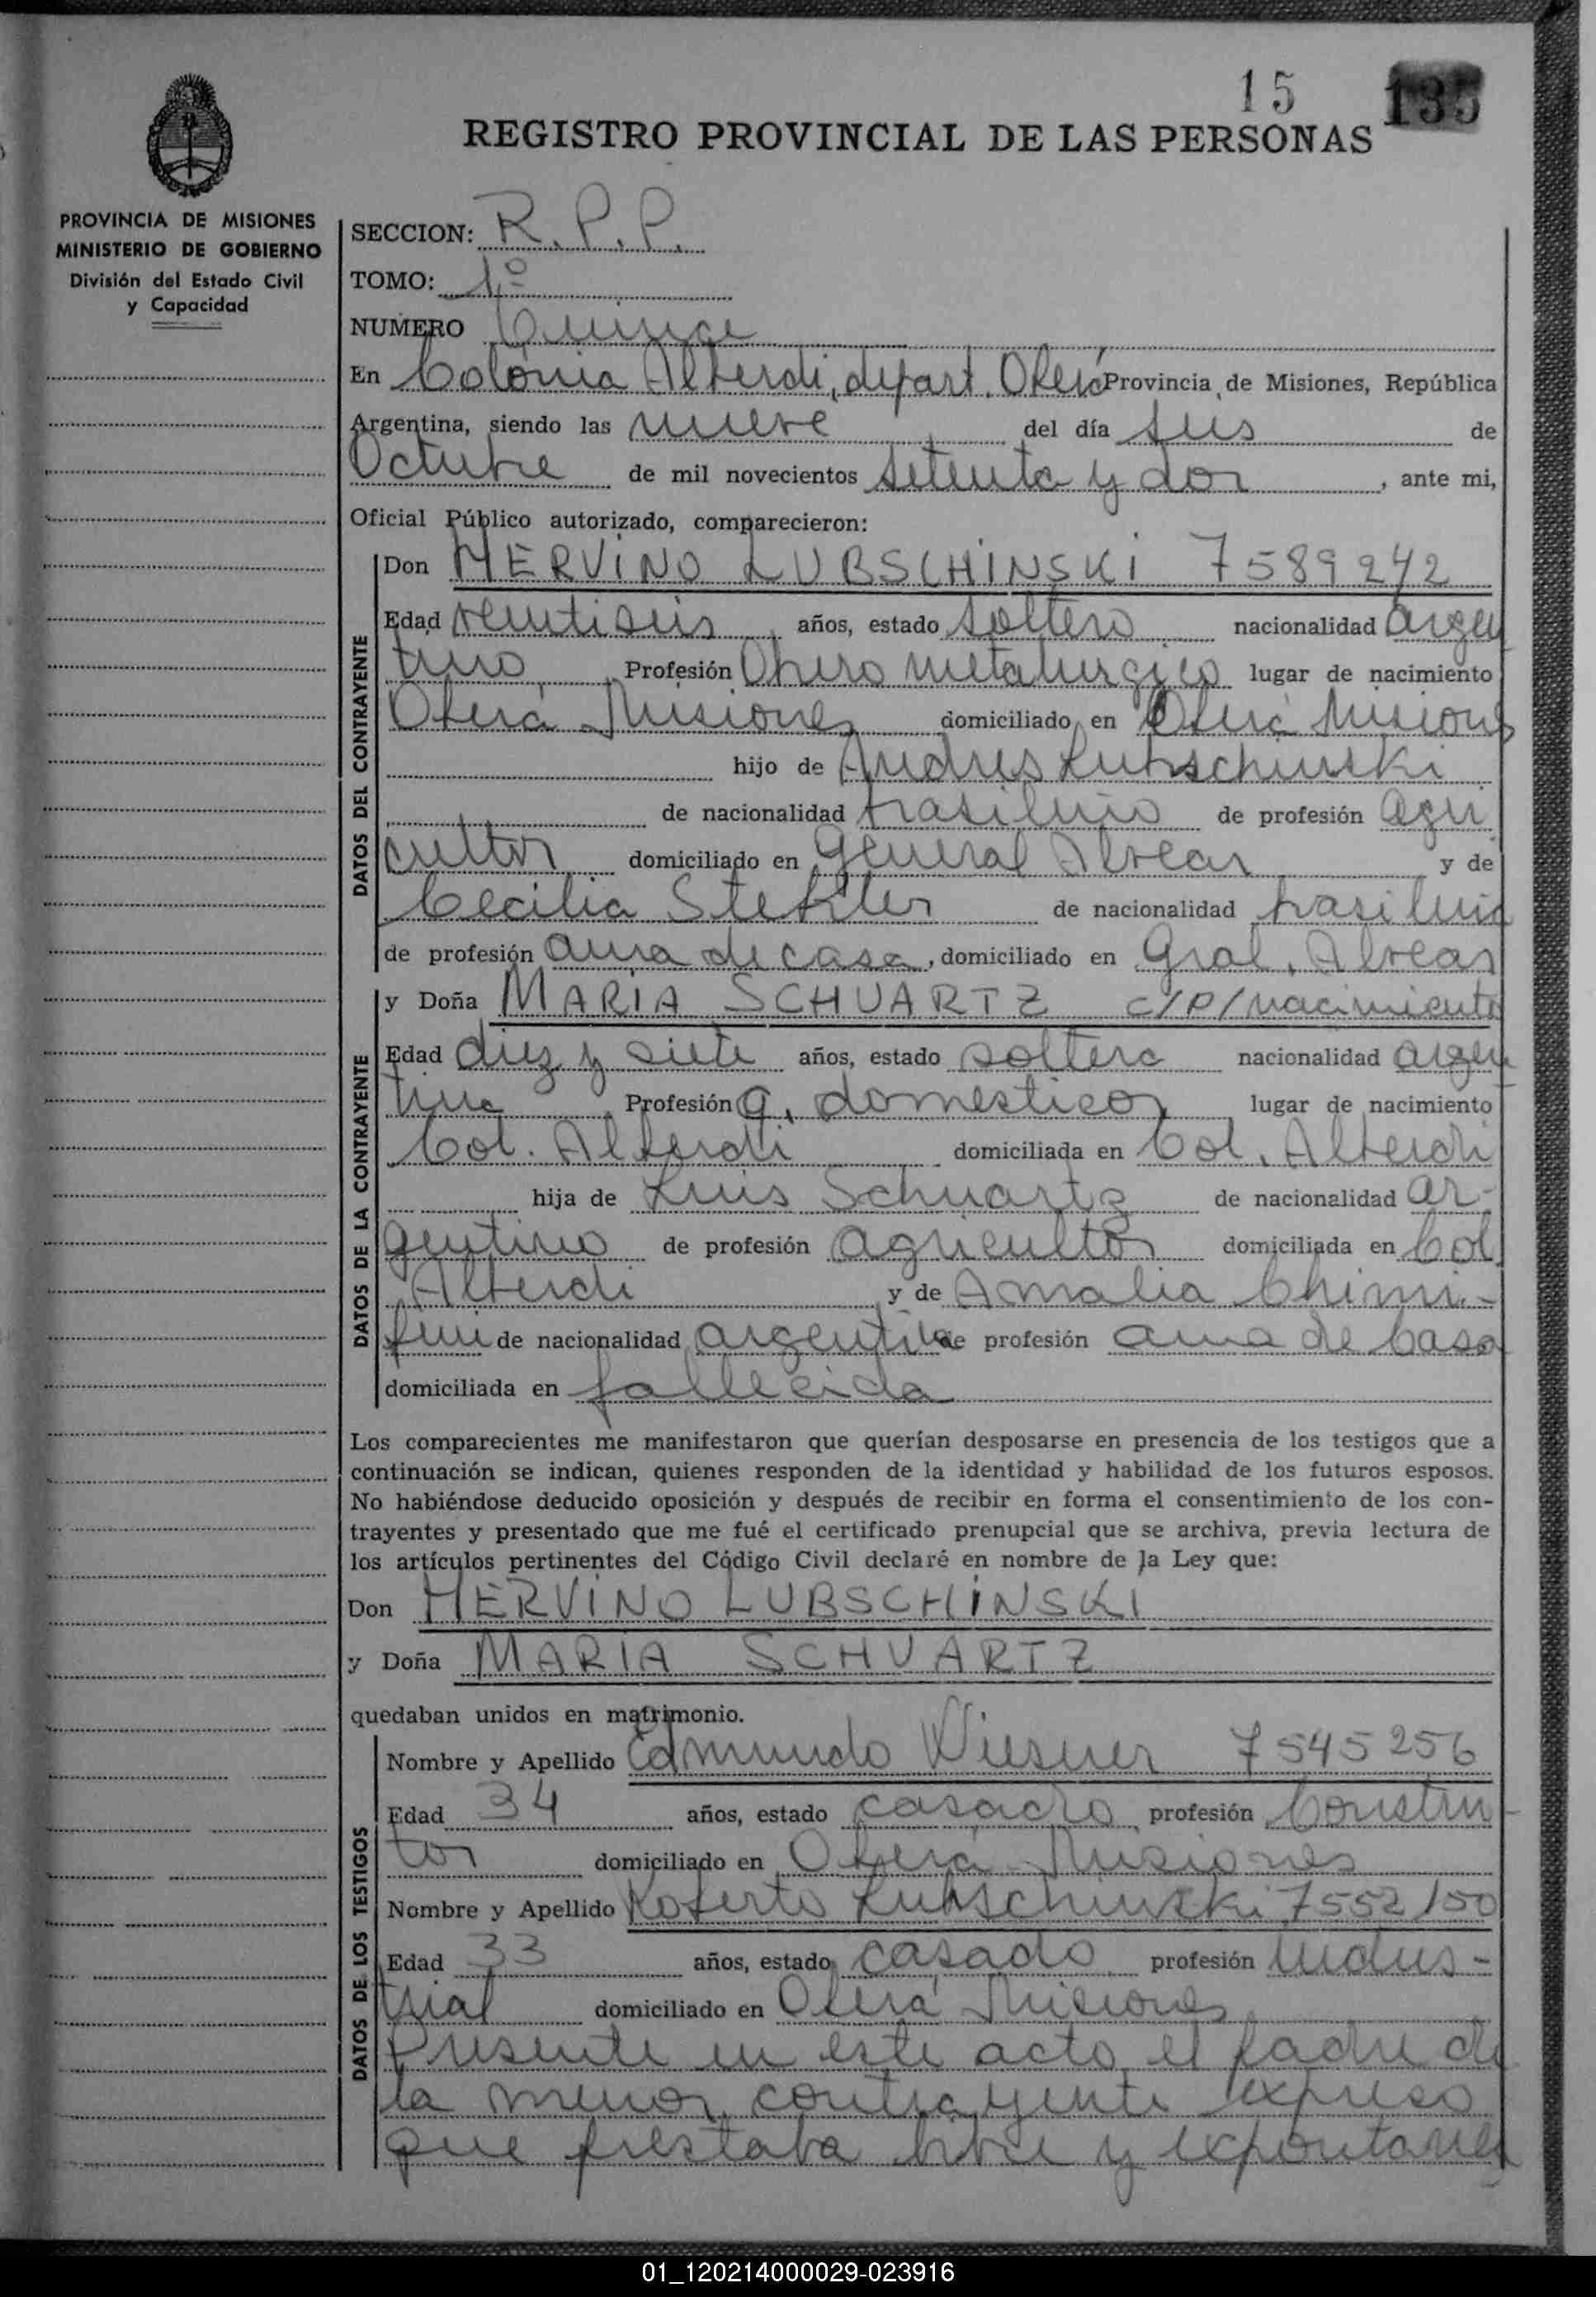 15 135
REGISTRO PROVINCIAL DE LAS PERSONAS
PROVINCIA DE MISIONES
MINISTERIO DE GOBIERNO
División del Estado Civil
y Capacidad
SECCION: R.P.P.
TOMO: 1º
NUMERO Quince
En Colonia Alberdi, depart. Oberá Provincia de Misiones, República
Argentina, siendo las nueve del día seis de
Octubre de mil novecientos setenta y dos, ante mi,
Oficial Público autorizado, comparecieron:
DATOS DEL CONTRAYENTE
Don HERVINO LUBSCHINSKI 7589242
Edad veintiseis años, estado soltero nacionalidad argen
tino, Profesión Obrero metalurgico lugar de nacimiento
Oberá Misiones domiciliado en Oberá Misiones
hijo de Andres Lubschinski
de nacionalidad brasilero de profesión agri
cultor domiciliado en General Alvear y de
Cecilia de nacionalidad brasilera
de profesión ama de casa, domiciliado en Gral. Alvear
DATOS DE LA CONTRAYENTE
y Doña MARIA SCHUARTZ c/p/nacimiento
Edad diez y siete años, estado soltera nacionalidad argen
tina Profesión q. domesticos lugar de nacimiento
Col. Alberdi domiciliada en Col. Alberdi
hija de Luis Schuartz de nacionalidad ar-
gentino de profesión agricultor domiciliada en Col
Alberdi y de Amalia
de nacionalidad argentina de profesión ama de casa
domiciliada en fallecida
Los comparecientes me manifestaron que querían desposarse en presencia de los testigos que a
continuación se indican, quienes responden de la identidad y habilidad de los futuros esposos.
No habiéndose deducido oposición y después de recibir en forma el consentimiento de los con-
trayentes y presentado que me fué el certificado prenupcial que se archiva, previa lectura de
los artículos pertinentes del Código Civil declaré en nombre de la Ley que:
Don HERVINO LUBSCHINSKI
y Doña MARIA SCHUARTZ
quedaban unidos en matrimonio.
DATOS DE LOS TESTIGOS
Nombre y Apellido Edmundo Wiesner 7545256
Edad 34 años, estado casado profesión Construc
tor domiciliado en Oberá Misiones
Nombre y Apellido Roberto Lubschinski 7552150
Edad 33 años, estado casado profesión indus-
trial domiciliado en Oberá Misiones
Presente en este acto el padre de
la menor contrayente expreso
que prestaba libre y expontanea
01_120214000029-023916